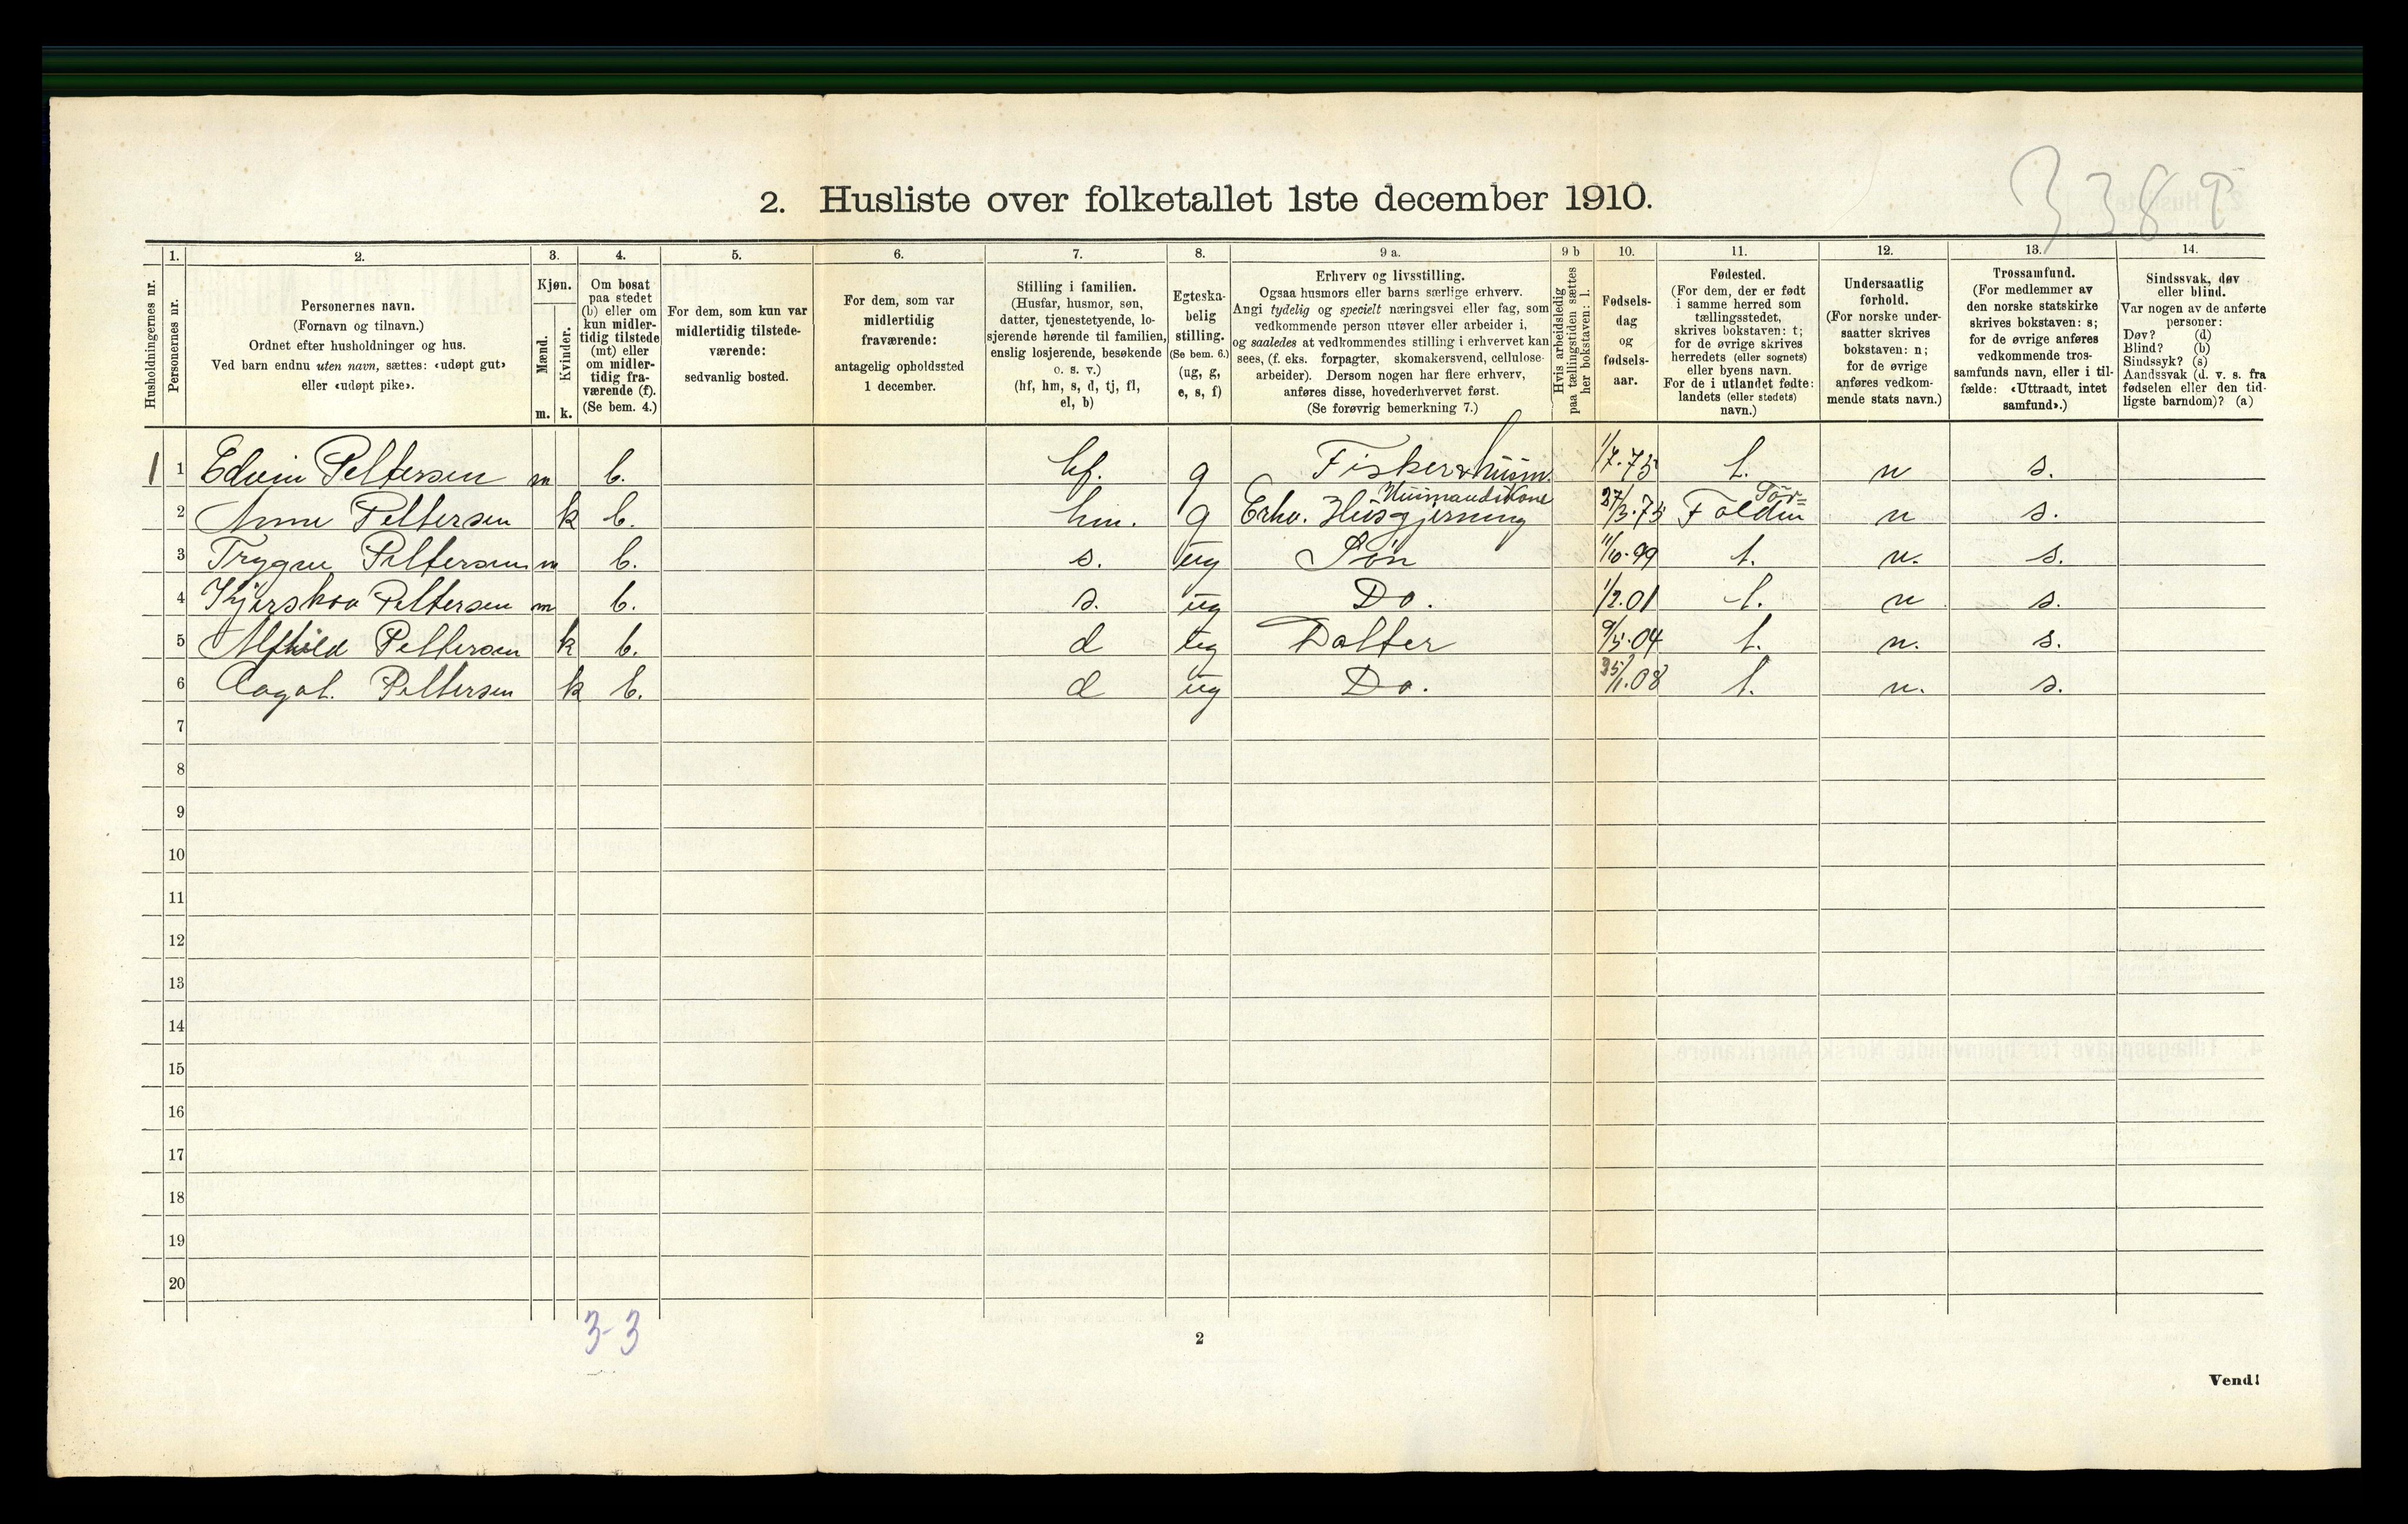 2. Husliste over folketallet 1ste december 1910.
Husholdningernes nr.
1. Personernes nr.
2. Personernes navn.
(Fornavn og tilnavn.)
Ordnet efter husholdninger og hus.
Ved barn endnu uten navn, sættes: «udøpt gut»
eller «udøpt pike».
3. Kjøn.
Mænd. m.
Kvinder. k.
4. Om bosat
paa stedet
(b) eller om
kun midler-
tidig tilstede
(mt) eller
om midler-
tidig fra-
værende (f).
(Se bem. 4.)
5. For dem, som kun var
midlertidig tilstede-
værende:
sedvanlig bosted.
6. For dem, som var
midlertidig
fraværende:
antagelig opholdssted
1 december.
7. Stilling i familien.
(Husfar, husmor, søn,
datter, tjenestetyende, lo-
sjerende hørende til familien,
enslig losjerende, besøkende
o. s. v.)
(hf, hm, s, d, tj, fl,
el, b)
8. Egteska-
belig
stilling.
(Se bem. 6.)
(ug, g,
e, s, f)
9 a. Erhverv og livsstilling.
Ogsaa husmors eller barns særlige erhverv.
Angi tydelig og specielt næringsvei eller fag, som
vedkommende person utøver eller arbeider i,
og saaledes at vedkommendes stilling i erhvervet kan
sees, (f. eks. forpagter, skomakersvend, cellulose-
arbeider). Dersom nogen har flere erhverv,
anføres disse, hovederhvervet først.
(Se forøvrig bemerkning 7.)
9 b Hvis arbeidsledig
paa tællingstiden sættes
her bokstaven: l.
10. Fødsels-
dag
og
fødsels-
aar.
11. Fødested.
(For dem, der er født
i samme herred som
tællingsstedet,
skrives bokstaven: t;
for de øvrige skrives
herredets (eller sognets)
eller byens navn.
For de i utlandet fødte:
landets (eller stedets)
navn.)
12. Undersaatlig
forhold.
(For norske under-
saatter skrives
bokstaven: n;
for de øvrige
anføres vedkom-
mende stats navn.)
13. Trossamfund.
(For medlemmer av
den norske statskirke
skrives bokstaven: s;
for de øvrige anføres
vedkommende tros-
samfunds navn, eller i til-
fælde: «Uttraadt, intet
samfund».)
14. Sindssvak, døv
eller blind.
Var nogen av de anførte
personer:
Døv? (d)
Blind? (b)
Sindssyk? (s)
Aandssvak (d. v. s. fra
fødselen eller den tid-
ligste barndom)? (a)
1 1 Edvin Pettersen m b. hf. g Fisker & husm. 1/7.75 t. n s.
Husmandskone
2 Anne Pettersen k b. hm. g Erhv. Husgjerning 27/3.75 Folden n s.
3 Trygve Pettersen m b. s. ug Søn 11/10.99 t. n. s.
4 Pettersen m b. s. ug Do. 1/2.01 t. n s.
5 Alfhild Pettersen k b. d ug Datter 9/5.04 t. n. s.
6 Aagot. Pettersen k b. d ug Do. 25/1.08 t. n. s.
7
8
9
10
11
12
13
14
15
16
17
18
19
20
3-3
2
Vend!